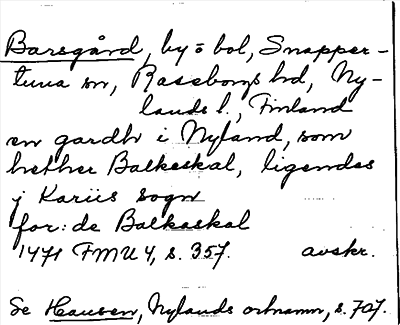 Barsgård, by o bol, Snapper-
tuna sn, Raseborgs hd, Ny-
lands l., Finland
en gardh i Nyland, som
hether Balkaskal, ligendes
j Kariis sogn
for: de Balkaskal
1471 FMU 4, s. 357. avskr.
Se Hausen, Nylands ortnamn, s. 707.